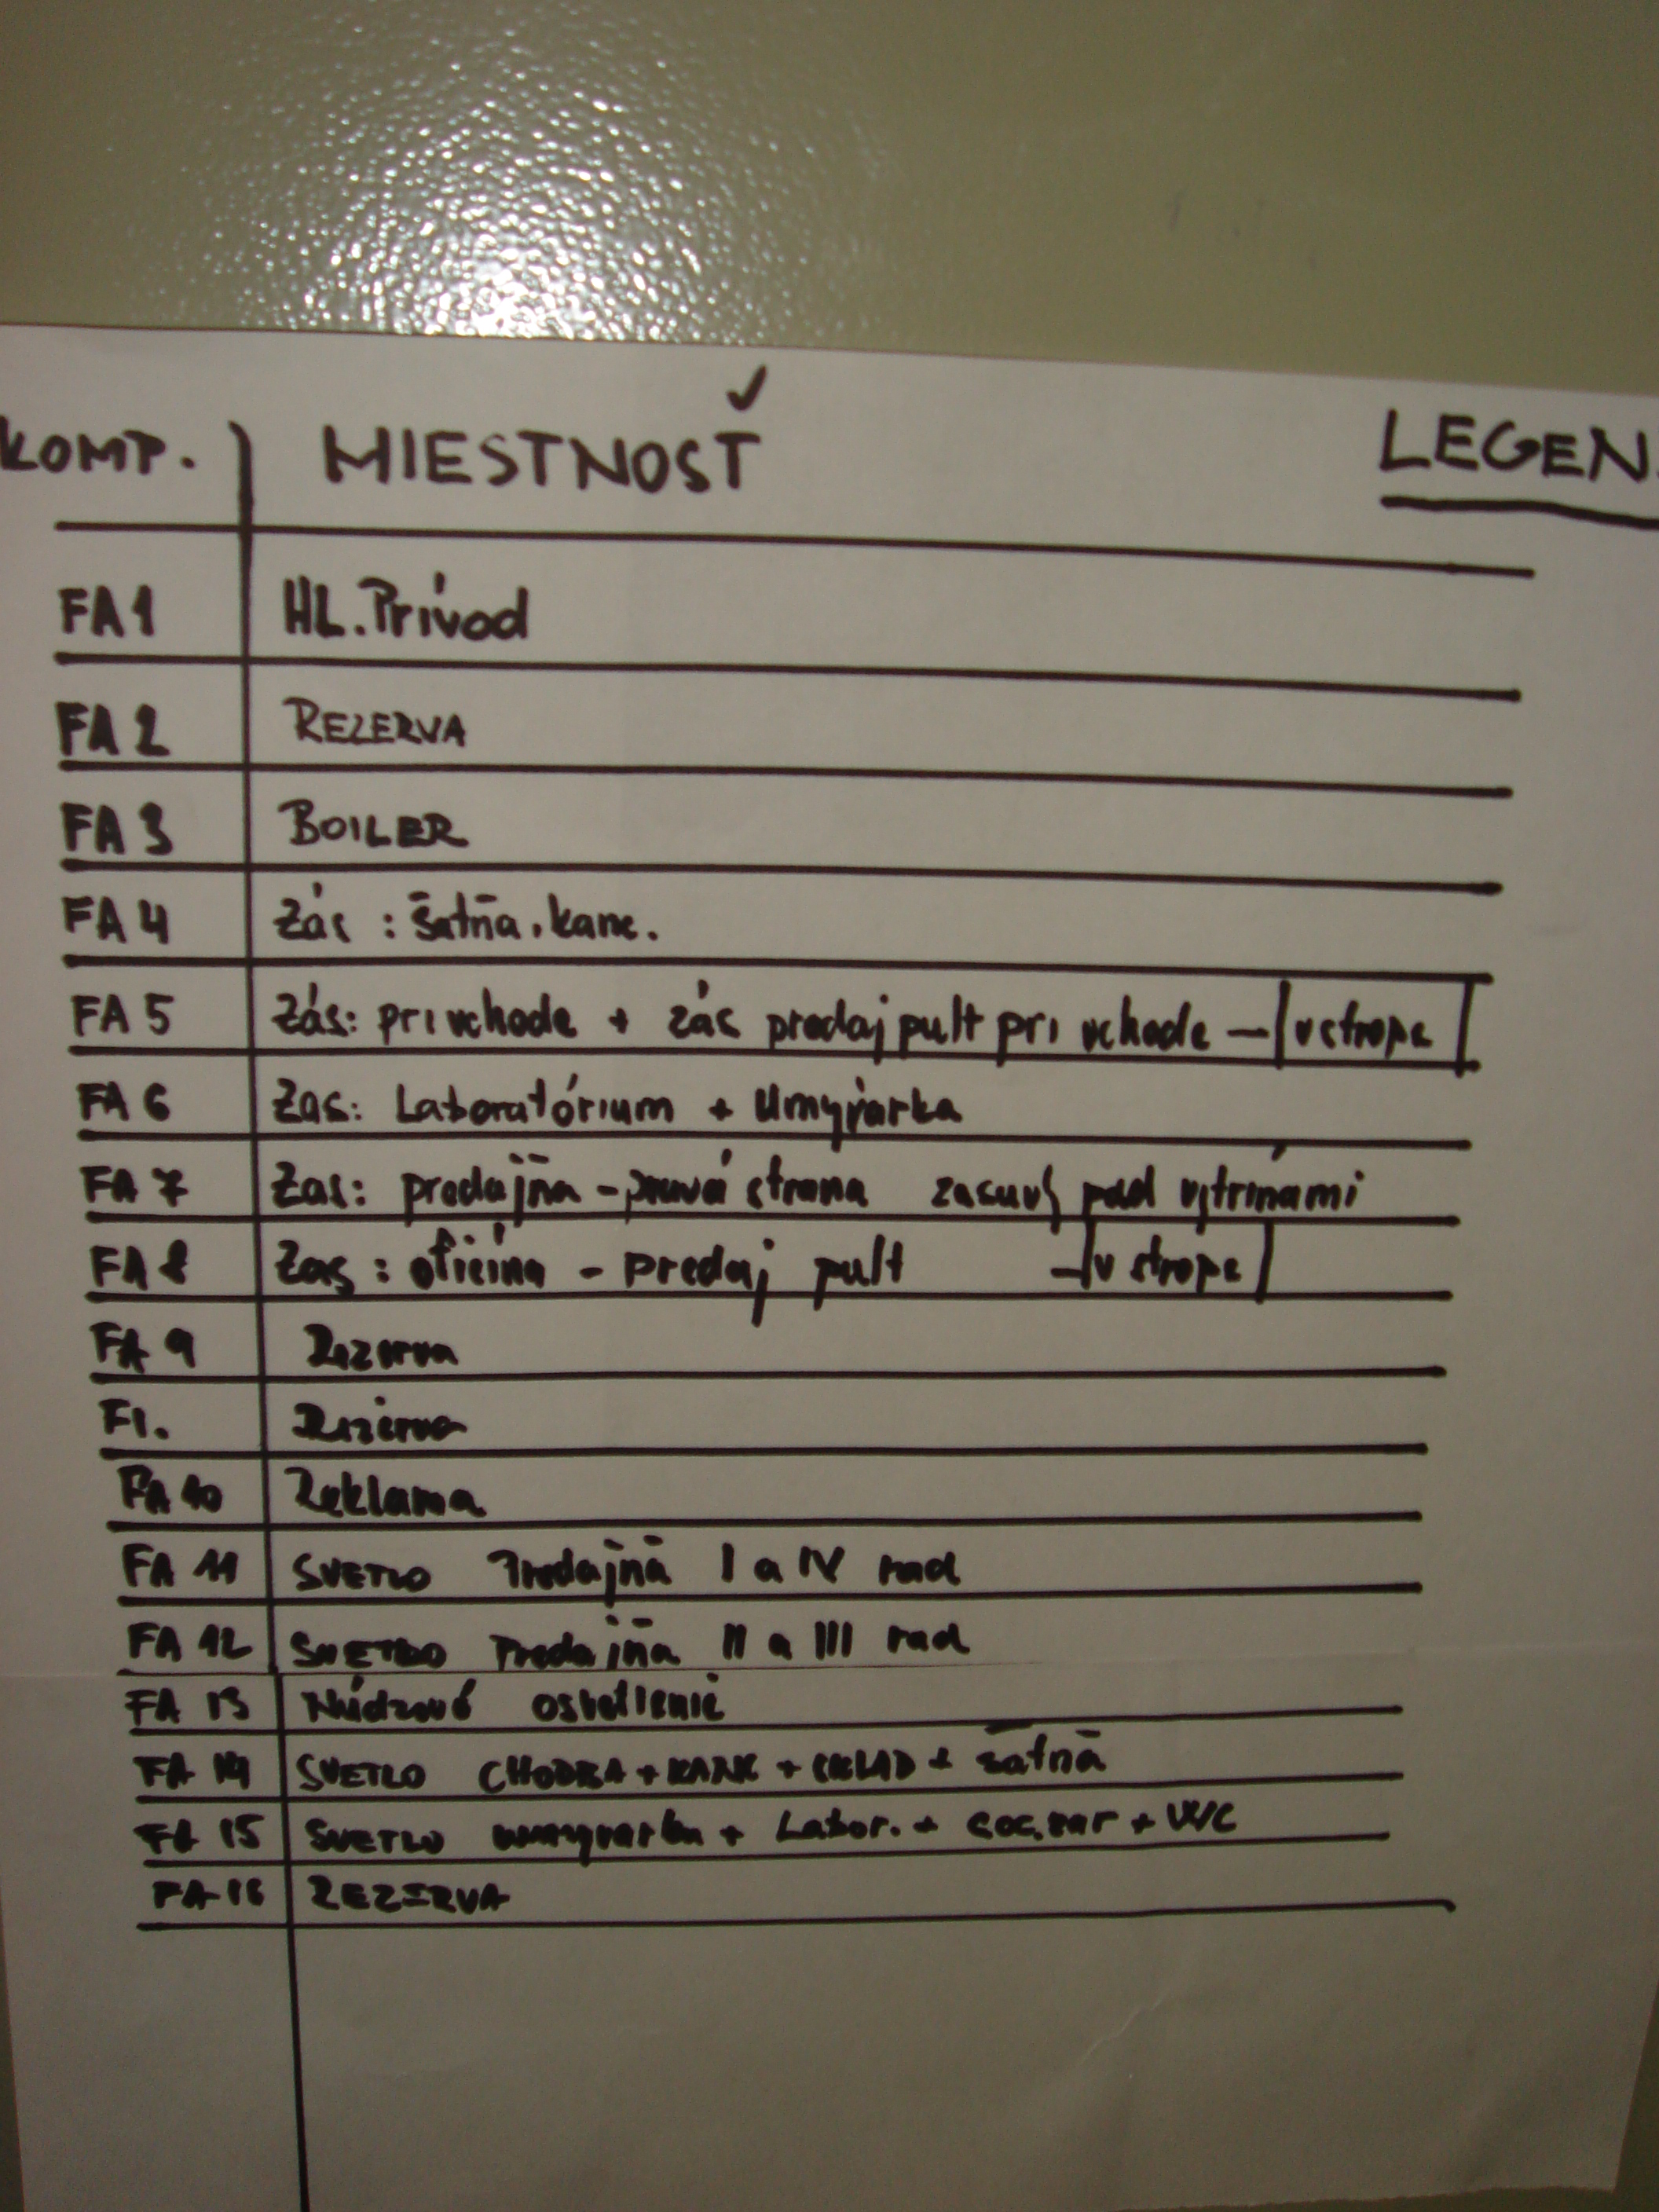 KOMP. MIESTNOSŤ LEGEN
FA1 HL.Prívod
FA2 REZERVA
FA3 BOILER
FA4 Zás : šatňa.kanc.
FA5 Zás: pri vchode + zás predaj pult pri vchode - v strope
FA6 Zas: Laboratórium + Umyvárka
FA7 Zas: predajňa - pravá strana zasuv pod vytrínami
FA8 Zas: oficína - predaj pult - v strope
FA9 Rezerva
FI. Rezerva
FA10 Reklama
FA11 SVETLO Predajňa I a IV rad
FA12 SVETLO Predajňa II a III rad
FA13 Núdzové osvetlenie
FA14 SVETLO CHODBA + KANC + SKLAD + šatňa
FA15 SVETLO umyvarka + Labor. + soc.zar + WC
FA16 REZERVA